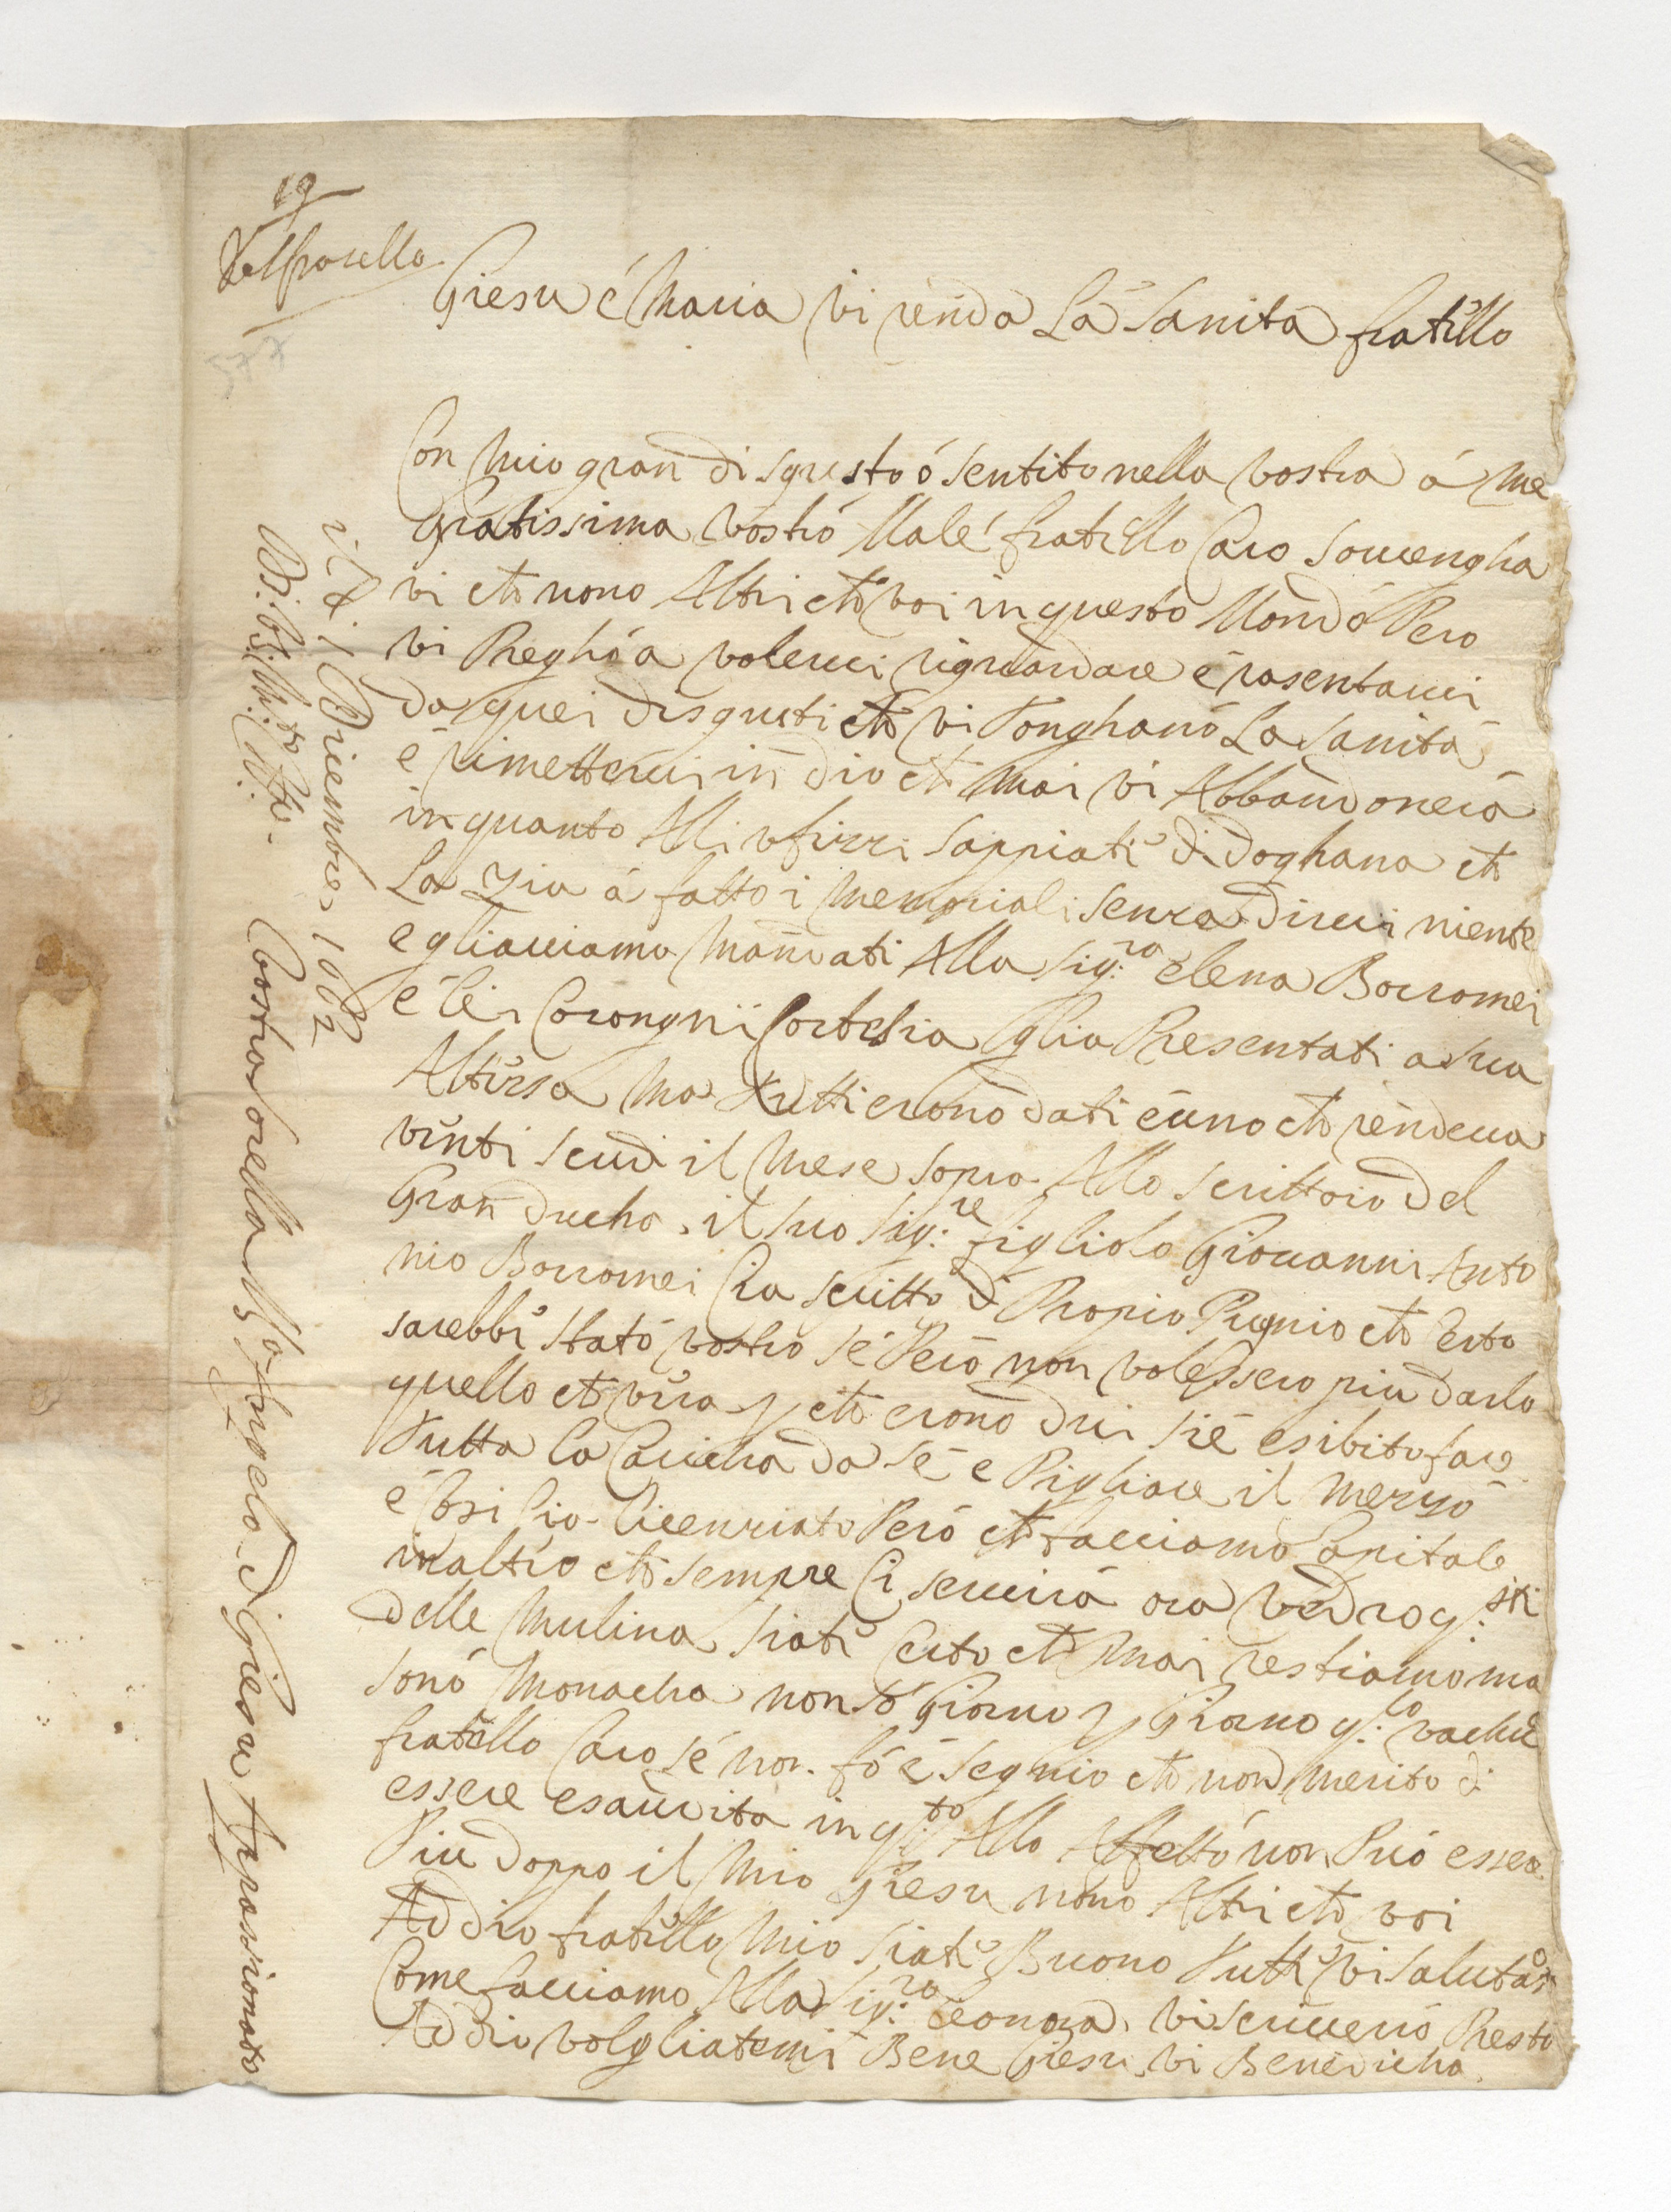 19
577
Giesu é Maria vi renda La Sanita fratello
Con mio gran disgusto ó sentito nella vostra á me
Gratissima vostro Male fratello Caro Souuengha
vi che nono Altri che voi in questo Mondo Pero
vi Pregho a volerui riguardare é rasentarui
da quei disgusti che vi Tonghano La Sanita
é rimetterui in dio che mai vi Abbandonerá
in quanto Alli vfizzi Sappiate di doghana che
La Zia á fatto i memoriali senza dirui niente
e gliauiamo mandati Alla Sig:ra elena Borromei
é lei Cortesia glia Presentati a sua
Alteza ma tutti erono dati é uno che rendeua
vinti scudi il mese sopra Allo scrittoio del
Gran ducha. il suo Sig:re figliolo Giouanni Anto
nio Borromei Cia scritto di Propio Pugnio che Certo
sarebbe stato vostro sé Però non volessero piu darlo
quello che vera che erono dui sié esibito fare
tutta la Caricha da sé e Pigliare il mezzo
é Cosi Però che facciamo Capitale
in altro che sempre Ci seruirá ora
delle mulina siate Certo che mai restiamo ma
sonó monacha non so Giorno Giorno
fratello Caro sé non fó é segnio che non merito di
essere esaudita in q:to Allo Affetto non Puó essere
Piu doppo il mio Giesu nono Altri che voi
Addio fratello mio siate Buono tutte vi saluta
Come facciamo Alla Sig:ra leonora. vi scriueró Presto
Addio volgliatemi Bene Giesu vi Benedicha
Diciembre 1682
Vostra sorella Angelo di Giesu Appassionato